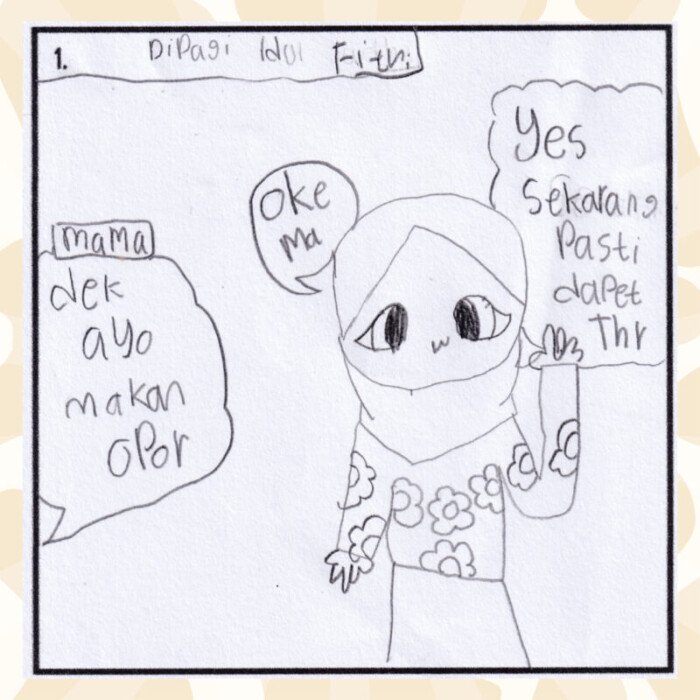 1.
Dipagi Idul Fitri
mama
dek
ayo
makan
opor
oke
ma
Yes
Sekarang
Pasti
dapet
Thr